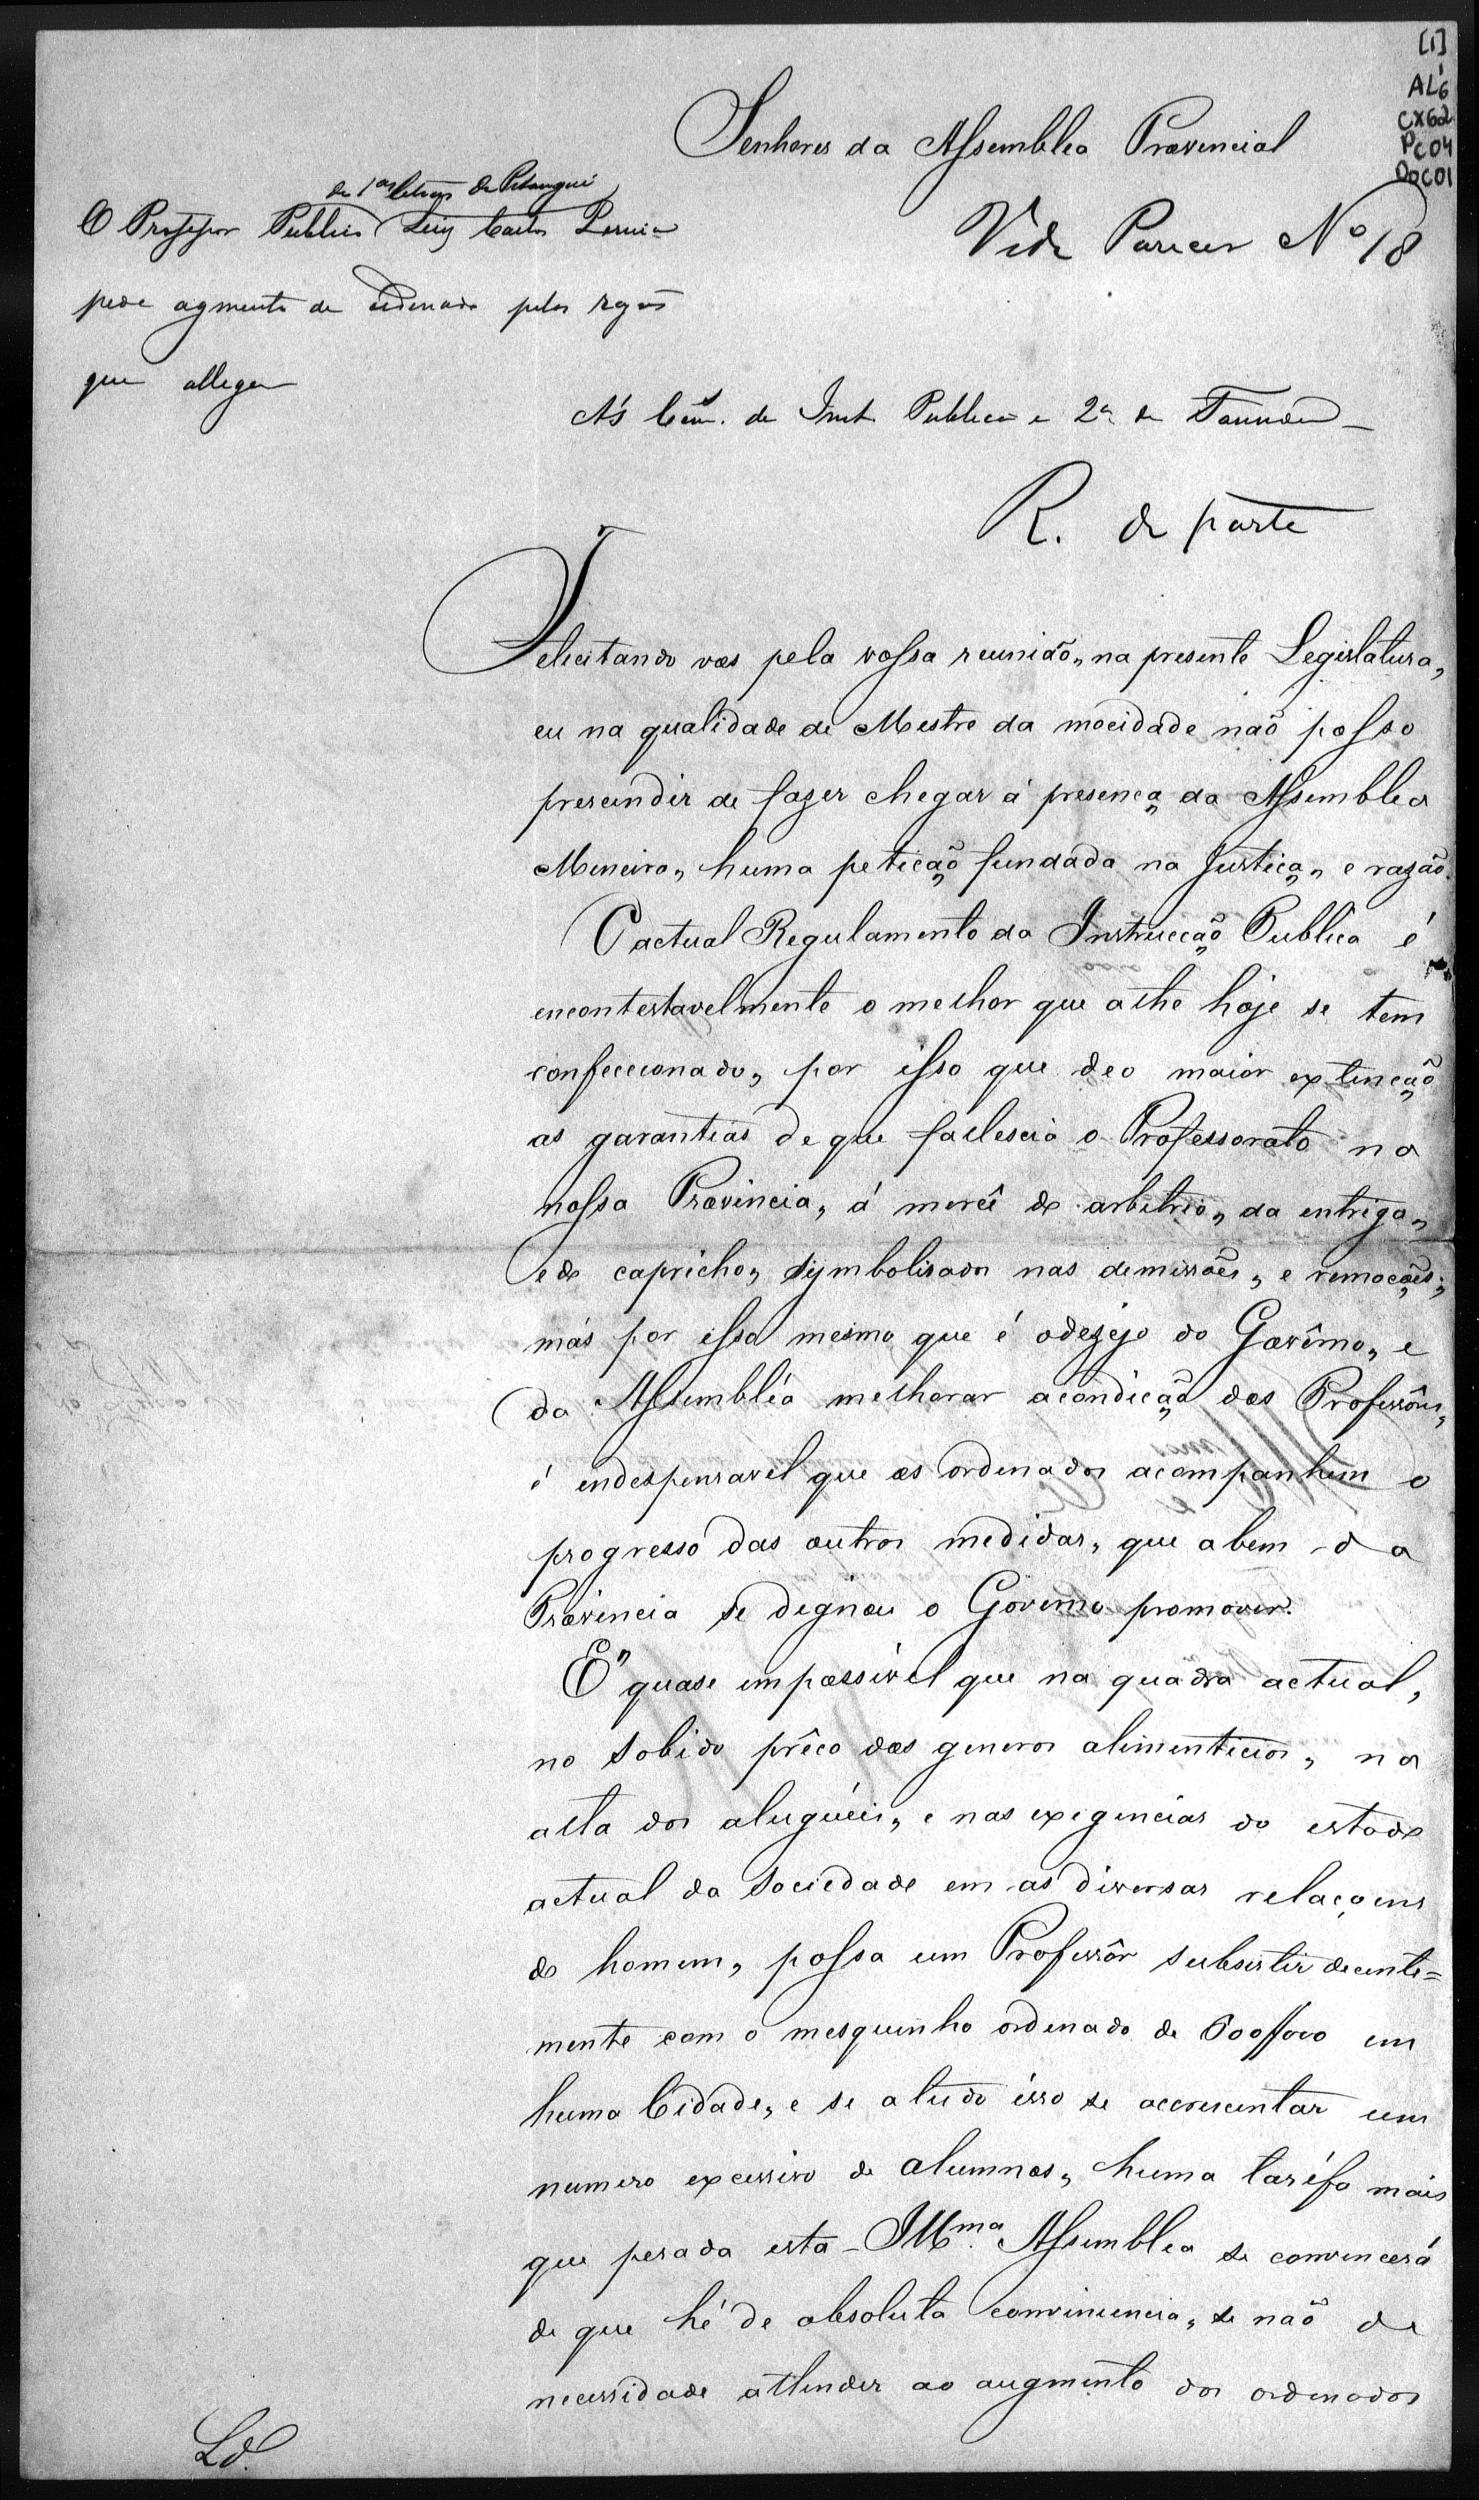 [1]
AL6
CX62
PC04
DOC01
Senhores da Assemblea Provincial
de 1as letras de Pitangui
O Professor Publico Luiz Carlos
pede agmento de ordenado pelas rasões
que allega
Vide Parecer No 18
Ás Com.s de Inst. Publica e 2a de Fazenda
R. de parte
Felicitando vos pela vossa reunião, na presente Legislatura,
eu na qualidade de Mestre da mocidade naõ posso
prescindir de fazer chegar á presença da Assemblea
Mineira, huma petição fundada na Justiça, e razão.
O actual Regulamento da Instrucção Publica é
encontestavelmente o melhor que athe hoje se tem
confeccionado, por isso que deo maior extenção
as garantias de que fallescia o Professorato na
nossa Provincia, á mercê do arbitrio, da entriga,
e do capricho, symbolisados nas demissões, e remoções;
más por isso mesmo que é odezejo do Govêrno, e
da Assembléa melhorar acondição dos Professôres,
é endespensavel que os ordenados acompanhem o
progresso das outras medidas, que abem da
Provincia se dignou o Governo promover.
É quase impossivel que na quadra actual,
no sobido prêço dos generos alimenticios, na
alta dos alugúeis, e nas exigencias do estado
actual da Sociedade em as diversas relaçoens
do homem, possa um Professôr subsistir decente=
mente com o mesquinho ordenado de 600$000 em
huma Cidade, e se a tudo isso se accrescentar um
numero excessivo de alumnos, huma taréfa mais
que pesada esta Illma. Assemblea se convencerá
de que hé de absoluta conviniencia, se naõ de
necessidade attender ao augmento dos ordenados